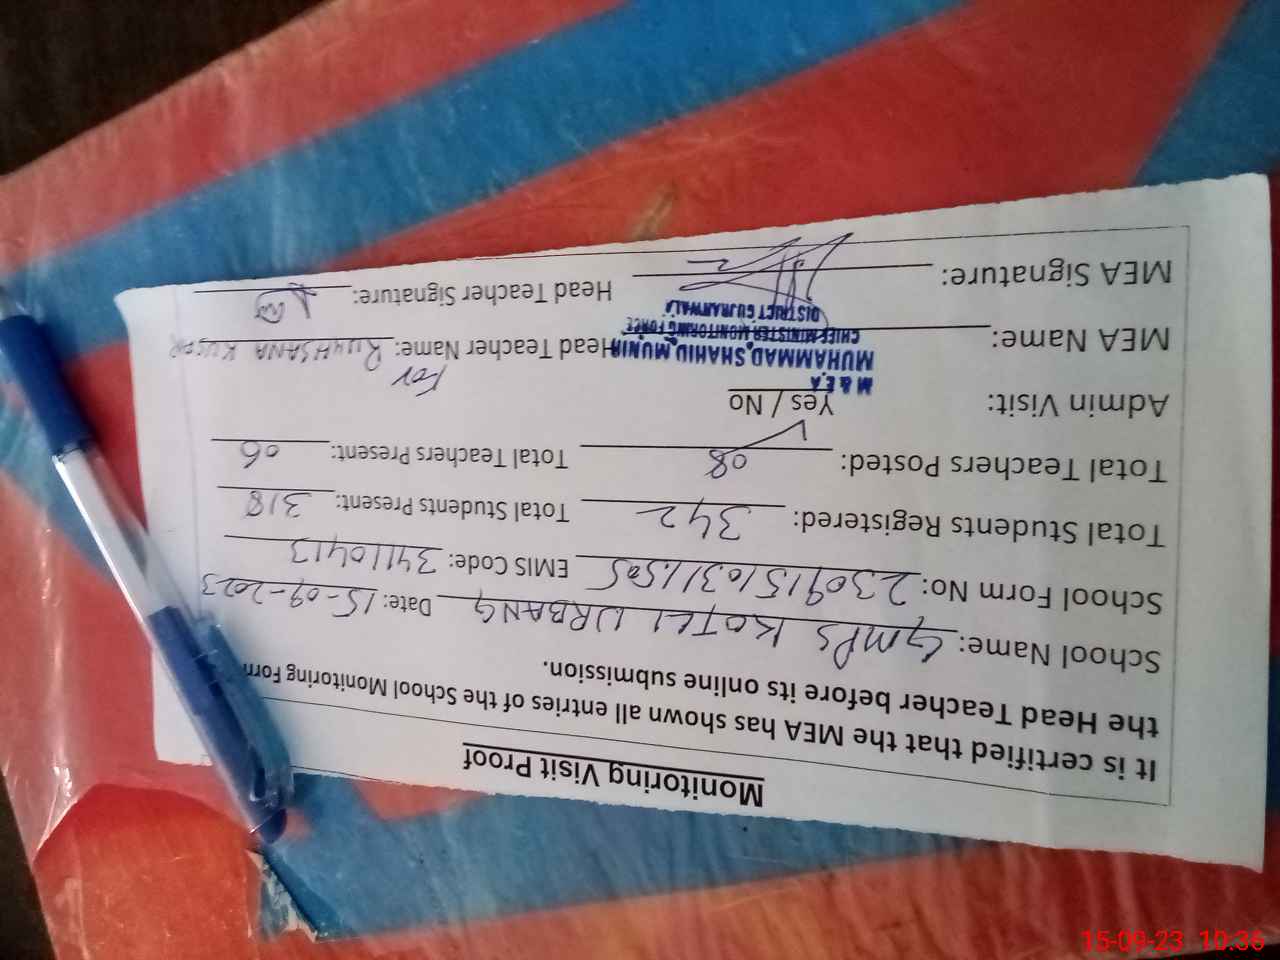 Monitoring Visit Proof
It is certified that the MEA has shown all entries of the School Monitoring Form
the Head Teacher before its online submission.
School Name: GMPS KOTLI URBANG Date: 15-09-2023
School Form No: 23091510311505 EMIS Code: 34110413
Total Students Registered: 342 Total Students Present: 318
Total Teachers Posted: 08 Total Teachers Present: 06
Admin Visit: Yes / No
For
MEA Name: Head Teacher Name: RUKHSANA
M & E A
MUHAMMAD SHAHID MUNIR
CHIEF MINISTER MONITORING FORCE
DISTRICT GUJRANWALA
MEA Signature: Head Teacher Signature:
15-09-23 10:36